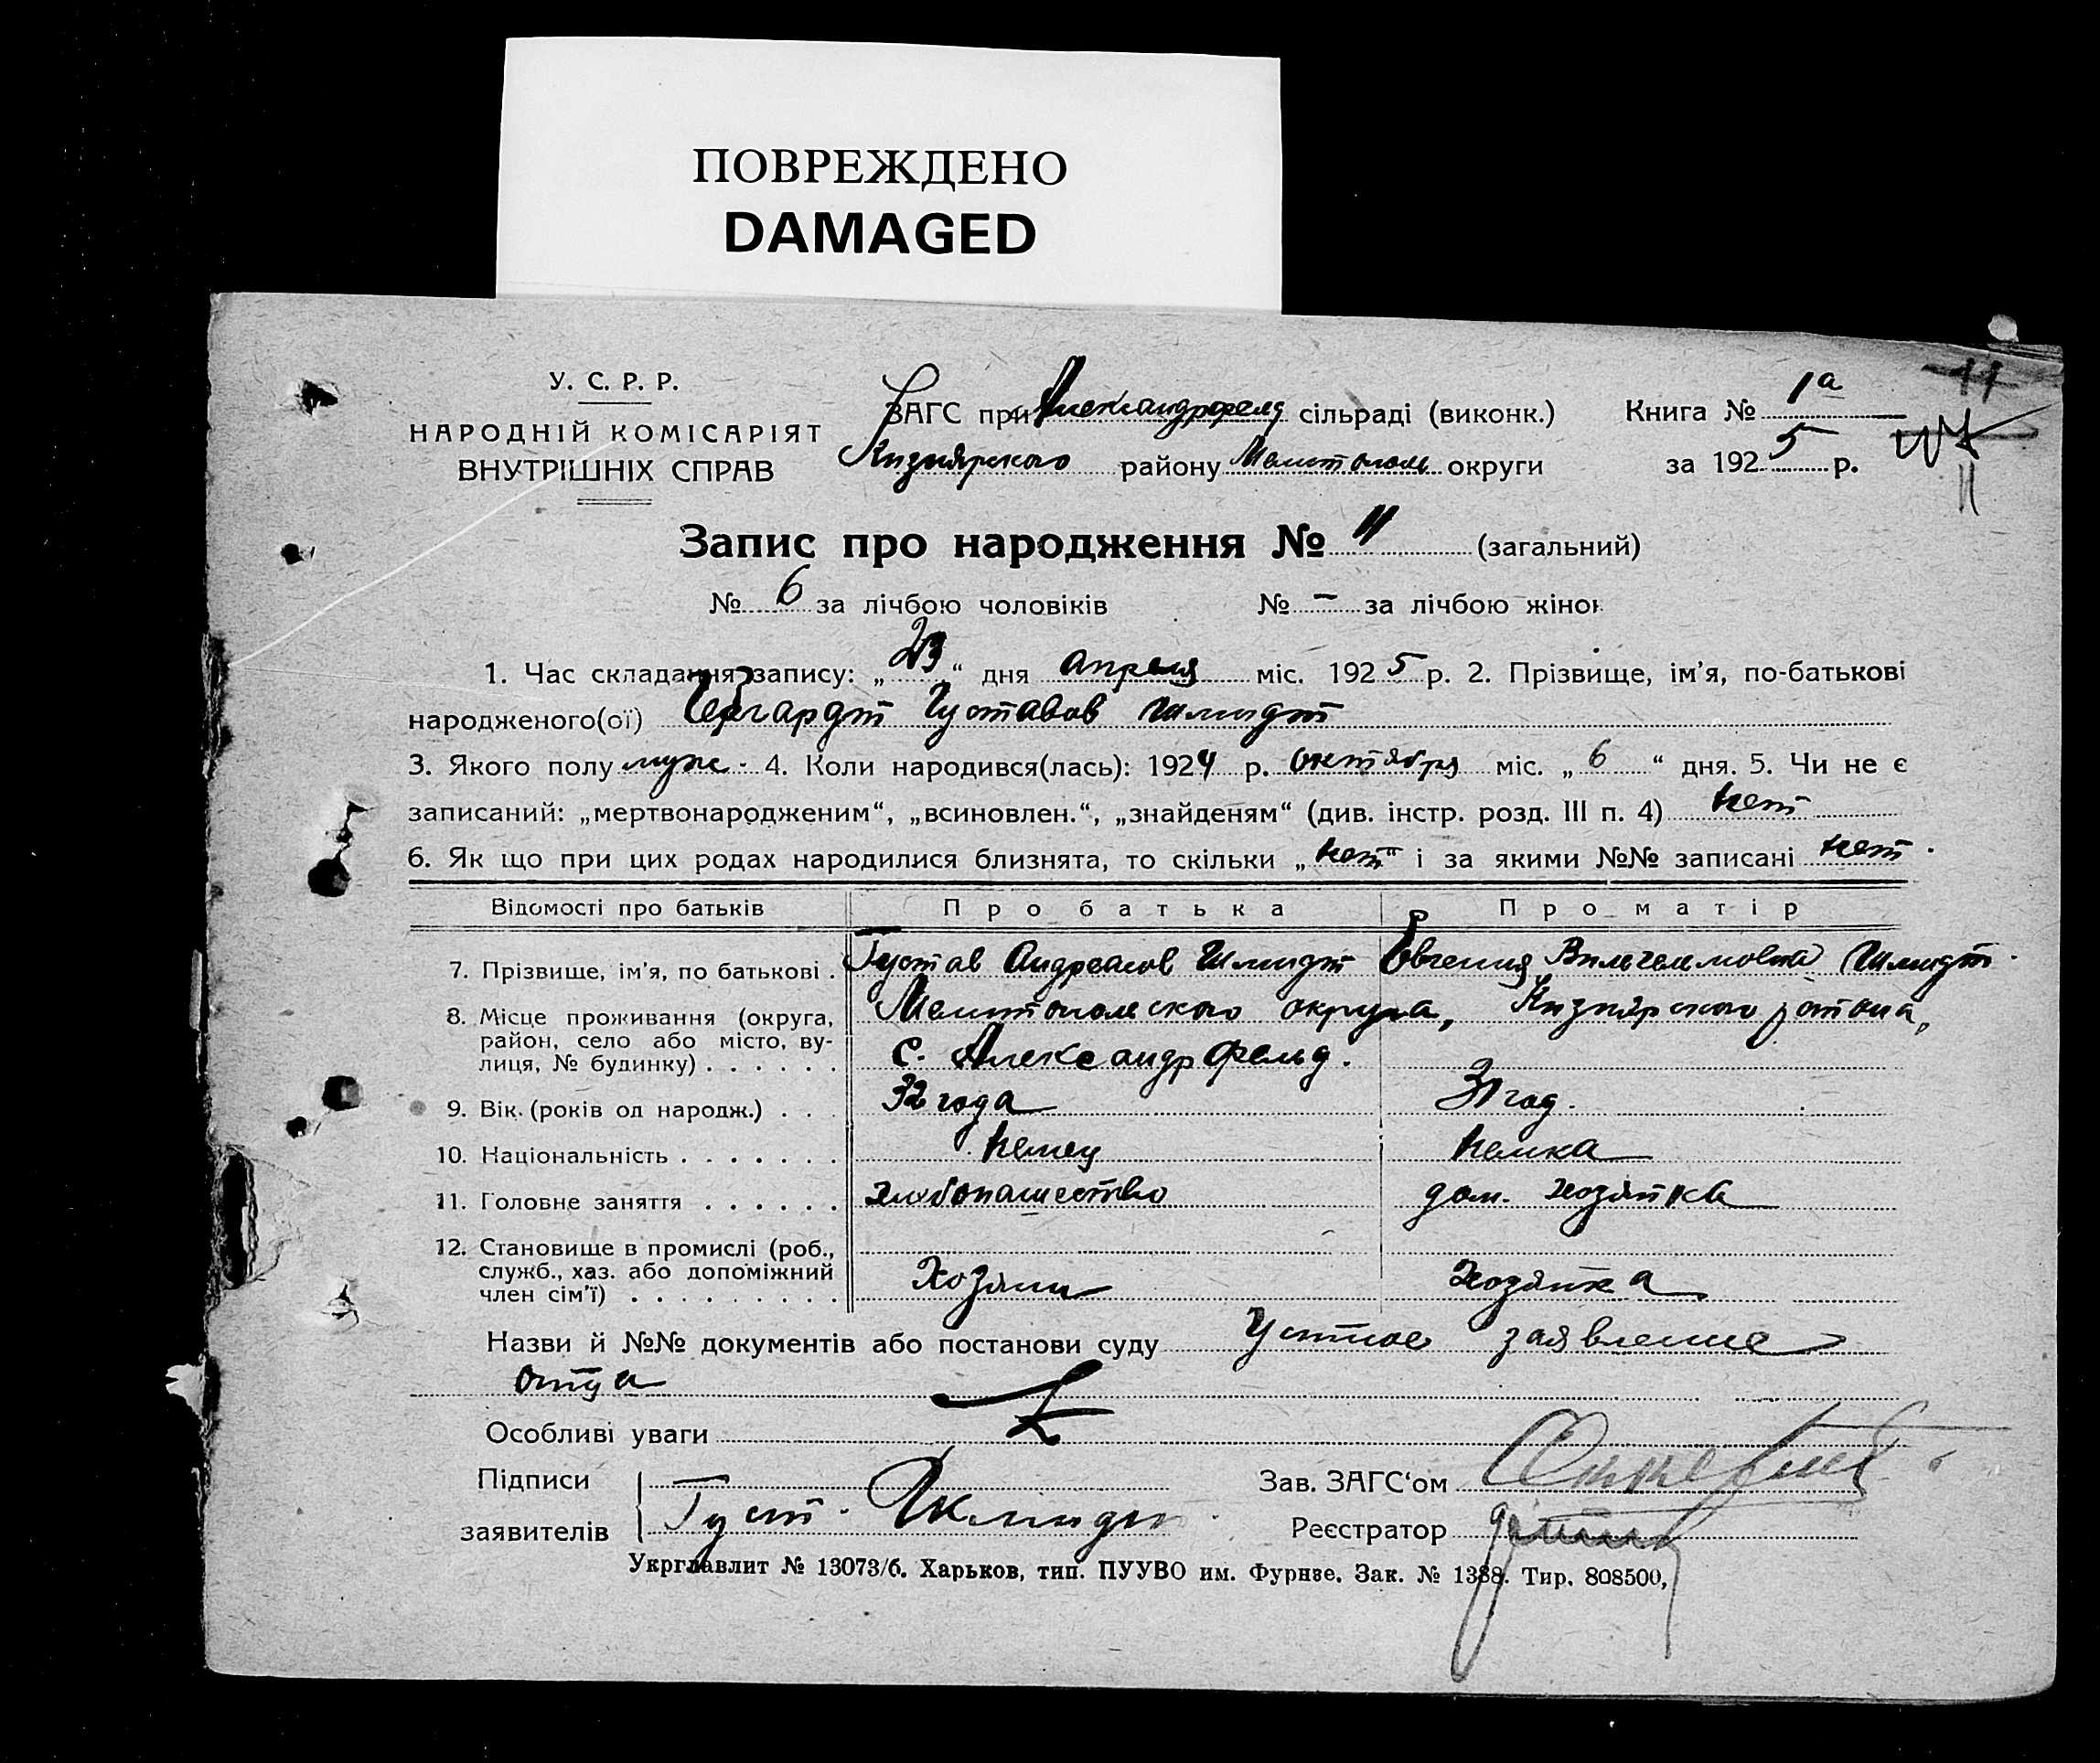 ПОВРЕЖДЕНО
DAMAGED
У. С. Р. Р.
НАРОДНІЙ КОМІСАРІЯТ
ВНУТРІШНІХ СПРАВ
ЗАГС при Александрфельд сільраді (виконк.)
Кизиярского району Мелитополь округи
Книга № 1а
за 1925 р.
11
11
Запис про народження № 11 (загальний)
№ 6 за лічбою чоловіків № - за лічбою жінок
1. Час складання запису: „23“ дня апреля міс. 1925 р. 2. Прізвище, ім’я, по-батькові
народженого(ої) Гергардт Густавов Шмидт
3. Якого полу муж. 4. Коли народився(лась): 1924 р. октября міс. „6“ дня. 5. Чи не є
записаний: „мертвонародженим“, „всиновлен.“, „знайденям“ (див. інстр. розд. III п. 4) нет
6. Як що при цих родах народилися близнята, то скільки „нет“ і за якими №№ записані нет.
Відомості про батьків Про батька Про матір
7. Прізвище, ім’я, по батькові . Густав Андреасов Шмидт Евгения Вильгельмовна Шмидт.
8. Місце проживання (округа, район, село або місто, вулиця, № будинку) . . . . . . Мелитопольского округа, Кизиярского района,
с. Александрфельд.
9. Вік (років од народж.) . . . 32 года 31 год.
10. Національність . . . . . . . Немец Немка
11. Головне заняття . . . . . . хлебопашество дом. хозяйка
12. Становище в промислі (роб., служб., хаз. або допоміжний член сім’ї) . . . . . . . . . Хозяин хозяйка
Назви й №№ документів або постанови суду Устное заявление
отца
Особливі уваги
Підписи
заявителів Густ. Шмидт
Зав. ЗАГС‘ом
Реєстратор
Укрглавлит № 13073/б. Харьков, тип. ПУУВО им. Фрунзе. Зак. № 1388. Тир. 808500,